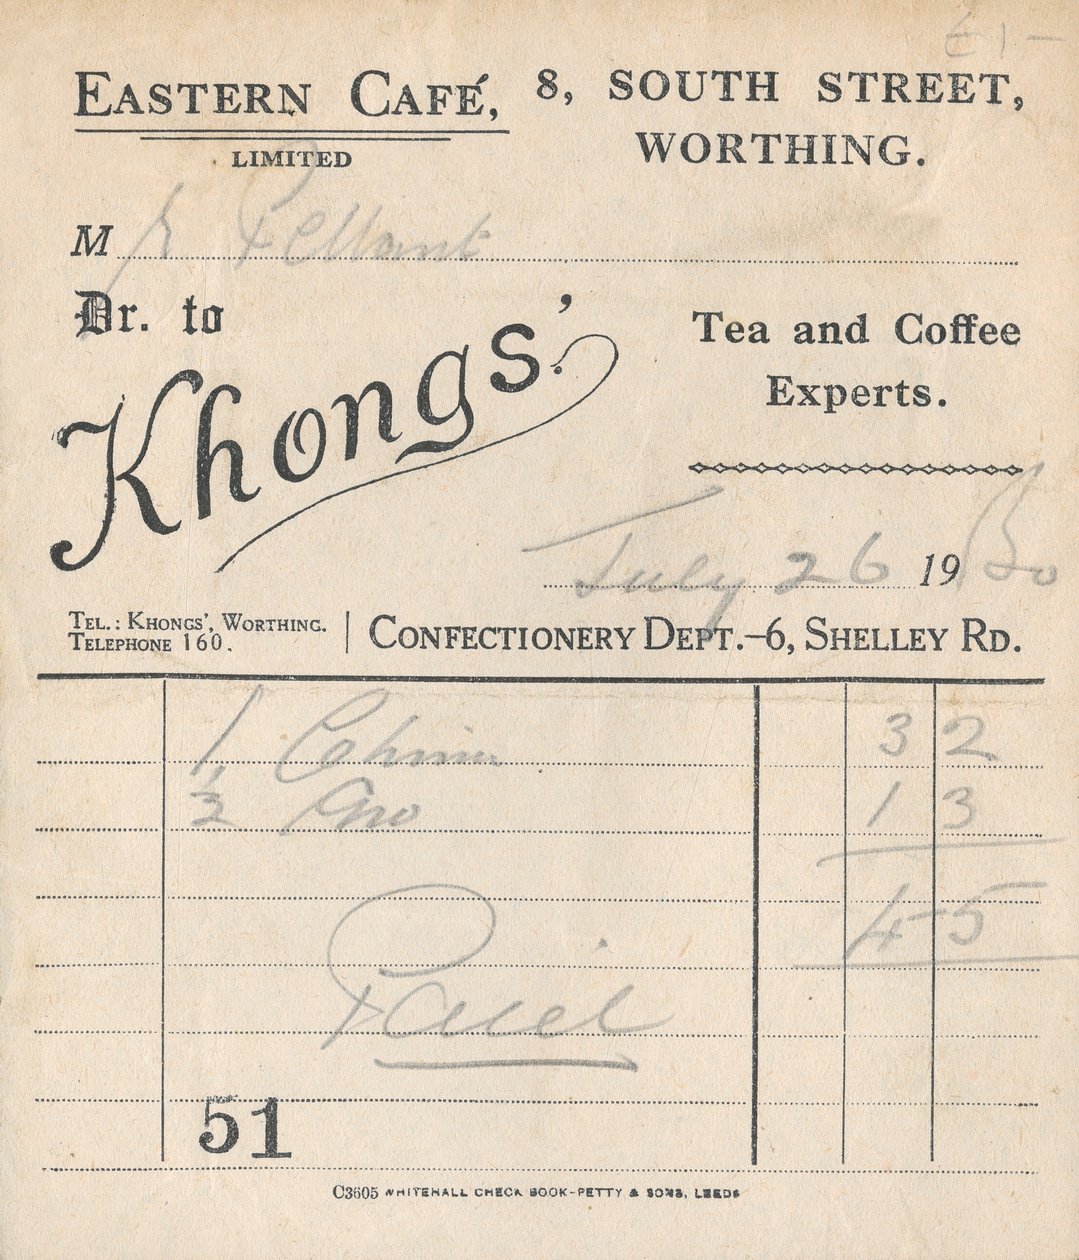 £1-
EASTERN CAFÉ, 8, SOUTH STREET,
LIMITED WORTHING.
Mr Pellant
Dr. to
Khongs'. Tea and Coffee
Experts.
July 26 1930
TEL.: KHONGS', WORTHING.
TELEPHONE 160.
CONFECTIONERY DEPT.-6, SHELLEY RD.
1 China 3 2
1/2 1 3
4-5
Paid
51
C3605 WHITEHALL CHECK BOOK-PETTY & SONS, LEEDS